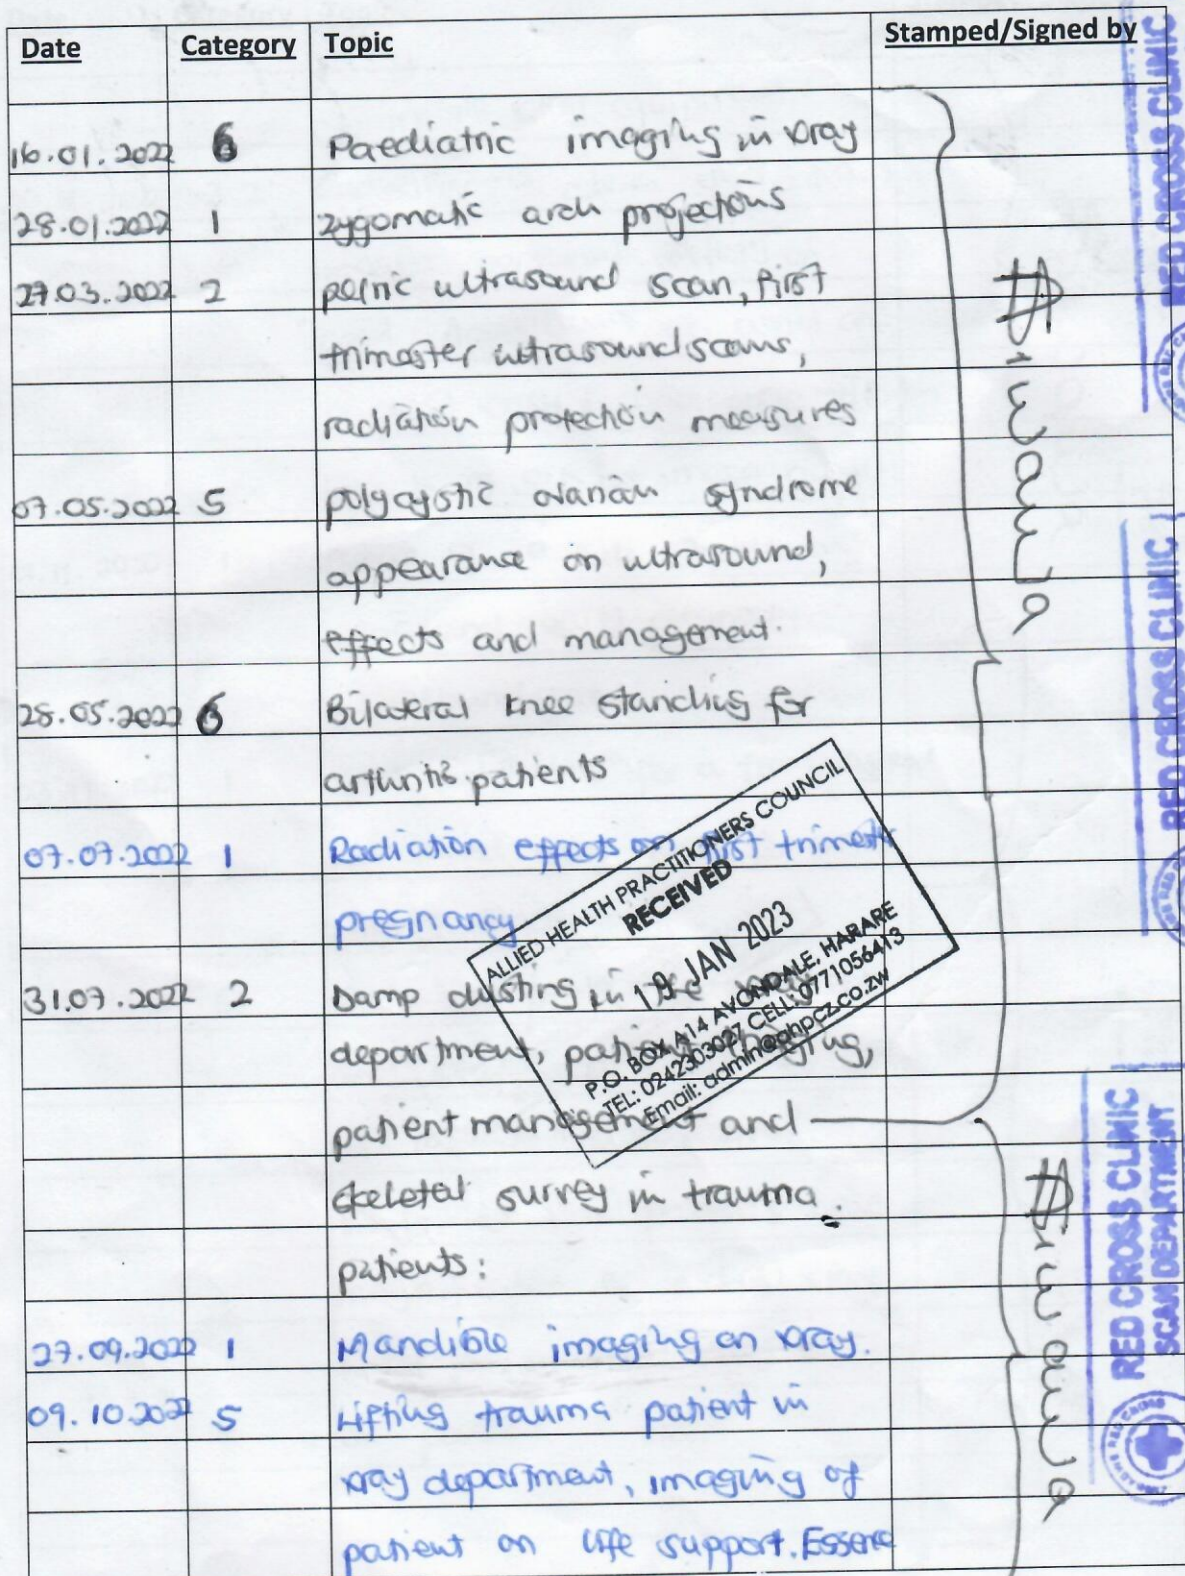 Date Category Topic Stamped/Signed by
16.01.2022 6 Paediatric imaging in xray
28.01.2022 1 zygomatic arch projections
27.03.2022 2 pelvic ultrasound scan, first
trimester ultrasound scans,
radiation protection measures
07.05.2022 5 polycystic ovarian syndrome
appearance on ultrasound,
effects and management.
28.05.2022 6 Bilateral knee standing for
arthritis patients
07.07.2022 1 Radiation effects on first trimester
pregnancy
31.07.2022 2 Damp dusting in the xray
department, patient
patient management and
skeletal survey in trauma
patients:
27.09.2022 1 Mandible imaging on xray.
09.10.2022 5 Lifting trauma patient in
xray department, imaging of
patient on life support. Essence
ALLIED HEALTH PRACTITIONERS COUNCIL
RECEIVED
19 JAN 2023
P.O. BOX A14 AVONDALE, HARARE
TEL: 0242303027 CELL: 0771056413
Email: admin@ahpcz.co.zw
RED CROSS CLINIC
RED CROSS CLINIC
RED CROSS CLINIC
RED CROSS CLINIC
SCAN DEPARTMENT